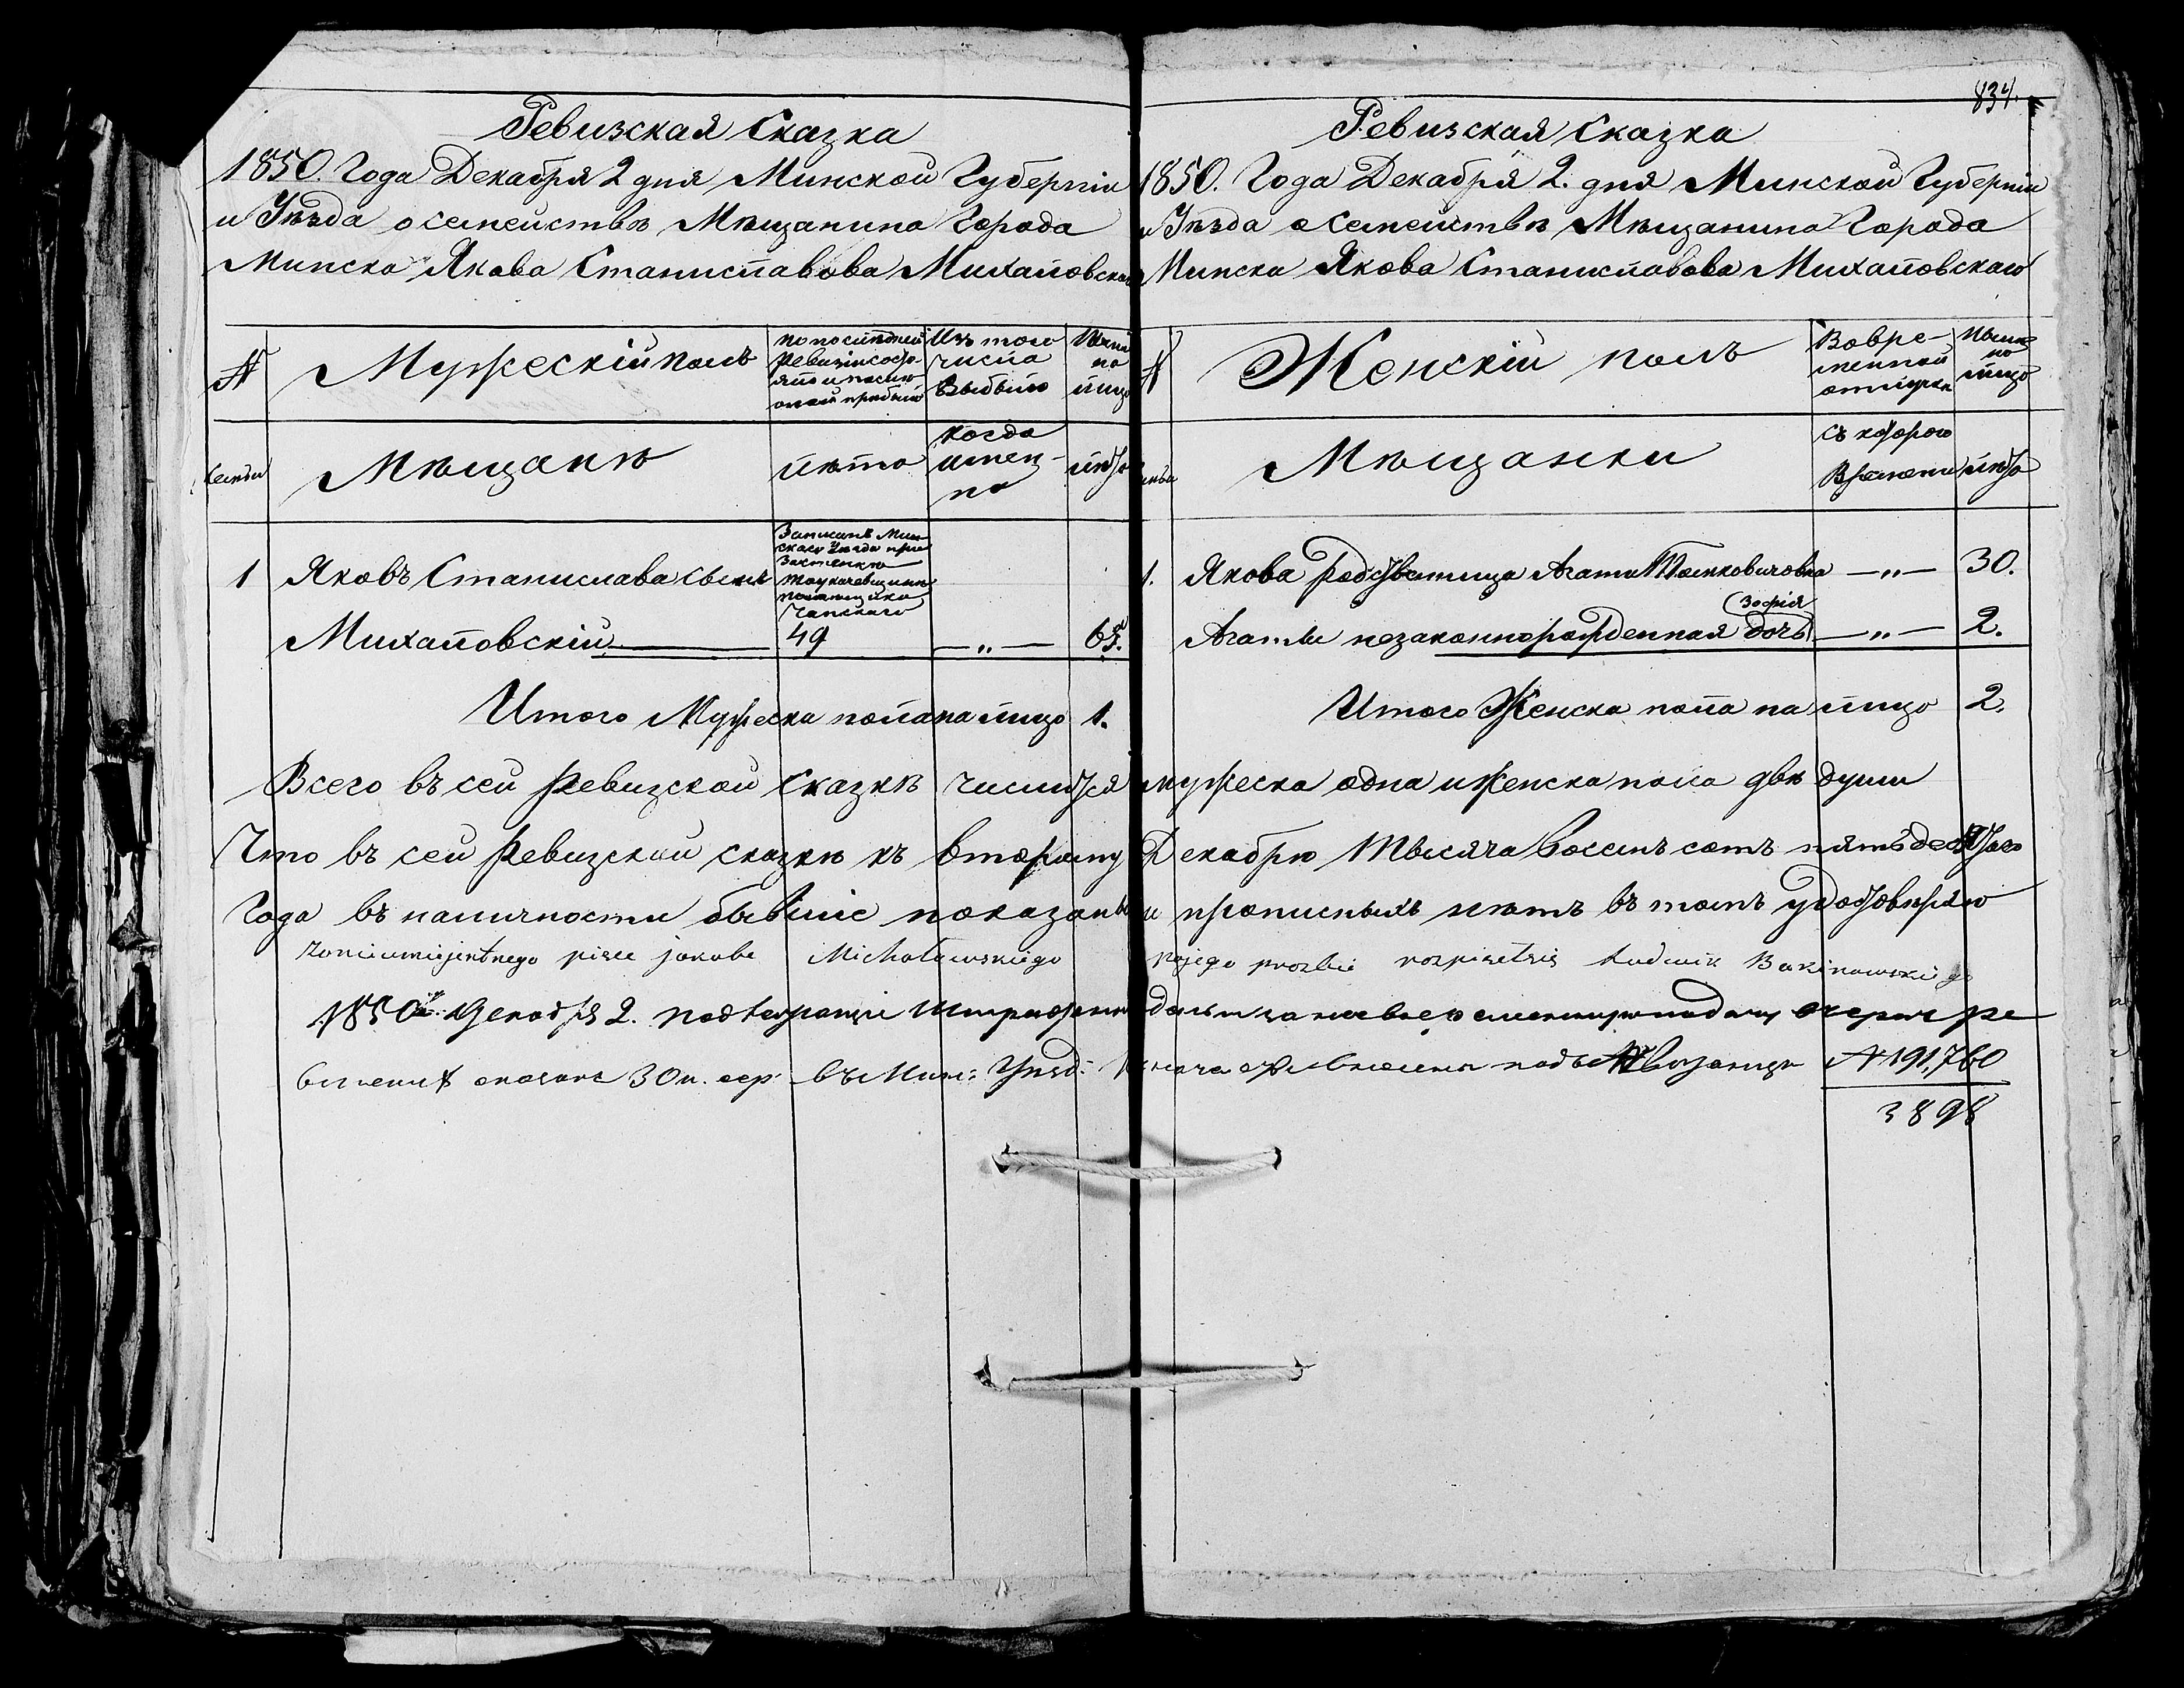 834.
Ревизская Сказка
1850. Года Декабря 2 дня Минской Губерніи
и Уѣзда о семействѣ Мѣщанина Города
Минска Якова Станиславова Михаловскаго
№ Мужескій полъ
По последней Ревизіи состояло и после оной прибыло
Изъ того числа выбыло
Ныне на лицо
семьи Мѣщанѣ
лѣта
когда именно
лѣта
1 Яковъ Станислава сынъ
Записанъ Минскаго Уѣзда при Застенкѣ помещика Чапскаго
Михаловскій 49 —„— 65.
Итого Мужеска пола на лицо 1.
Ревизская Сказка
1850. Года Декабря 2. дня Минской Губерніи
и Уѣзда о Семействѣ Мѣщанина Города
Минска Якова Станиславова Михаловскаго
№ Женскій полъ
Во временной отлучке
Ныне на лицо
семьи Мѣщанки
съ котораго времени
лѣта
1. Якова родственница Агата Томковичовна —„— 30.
Зофія
Агаты незаконнорожденная дочь —„— 2.
Итого Женска пола на лицо 2.
Всего въ сей Ревизской Сказкѣ числится мужеска одна и женска пола двѣ души
Что въ сей Ревизской сказке къ второму Декабрю тысяча восемь сотъ пятьдесятаго
Года въ наличности бывшіе показаны и прописныхъ нѣтъ въ томъ удостовѣряю
pisac jakuba Michałowskiego prozbie rozpisał się Ludwik
1850 Декабря 2.
30 к. сер. въ Мин: Уѣзд: подъ № 191,760
3898